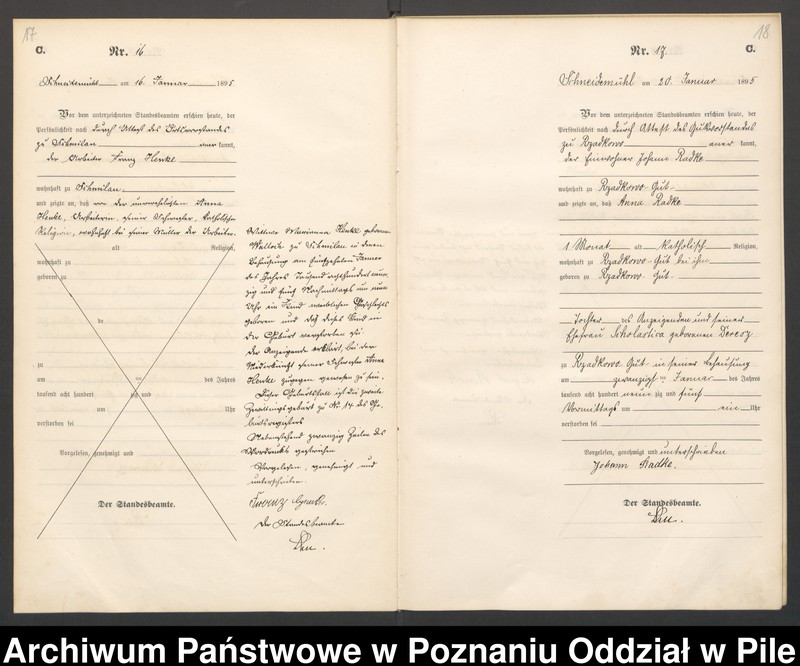 17
C.
Nr. 16
Schneidemühl am 16 Januar 1895
Vor dem unterzeichneten Standesbeamten erschien heute, der
Persönlichkeit nach durch Attest des Gutsvorstandes
zu Schmilau aner kannt,
der Arbeiter Franz Henke
wohnhaft zu Schmilau
und zeigte an, daß von der unverehelichten Anna
Henke, Arbeiterin, seiner Schwester, katholischer
Religion, wohnhaft bei seiner Mutter der Arbeiter
alt Religion,
wohnhaft zu
geboren zu
de
zu
am ten des Jahres
tausend acht hundert zig und
um Uhr
verstorben sei
Vorgelesen, genehmigt und
Der Standesbeamte.
Wittwe Marianna Henke geborene
zu Schmilau in deren
Behausung am fünfzehnten Januar
des Jahres Tausend achthundert neun
zig und fünf Nachmittags um neun
Uhr ein Kind weiblichen Geschlechts
geboren und daß dieses Kind in
der Geburt verstorben sei
der Anzeigende erklärt, bei der
Niederkunft seiner Schwester Anna
Henke zugegen gewesen zu sein.
Dieser Geburtsfall ist die zweite
Zwillingsgeburt zu No 14 des Ge-
burtsregisters
Nebenstehend zwanzig Zeilen des
Vordrucks gestrichen
Vorgelesen, genehmigt und
unterschrieben
Der Standesbeamte
18
Nr. 17. C.
Schneidemühl am 20. Januar 1895
Vor dem unterzeichneten Standesbeamten erschien heute, der
Persönlichkeit nach durch Attest des Gutsvorstandes
zu Rzadkowo aner kannt,
der Einwohner Johann Radke
wohnhaft zu Rzadkowo Gut
und zeigte an, daß Anna Radke
1 Monat alt katholisch Religion,
wohnhaft zu Rzadkowo Gut bei ihm
geboren zu Rzadkowo Gut
Tochter des Anzeigenden und seiner
Ehefrau Scholastica geborenen Deresz
zu Rzadkowo Gut in seiner Behausung
am zwanzigsten Januar des Jahres
tausend acht hundert neun zig und fünf
Vormittags um ein Uhr
verstorben sei
Vorgelesen, genehmigt und unterschrieben
Johann Radtke.
Der Standesbeamte.
Archiwum Państwowe w Poznaniu Oddział w Pile